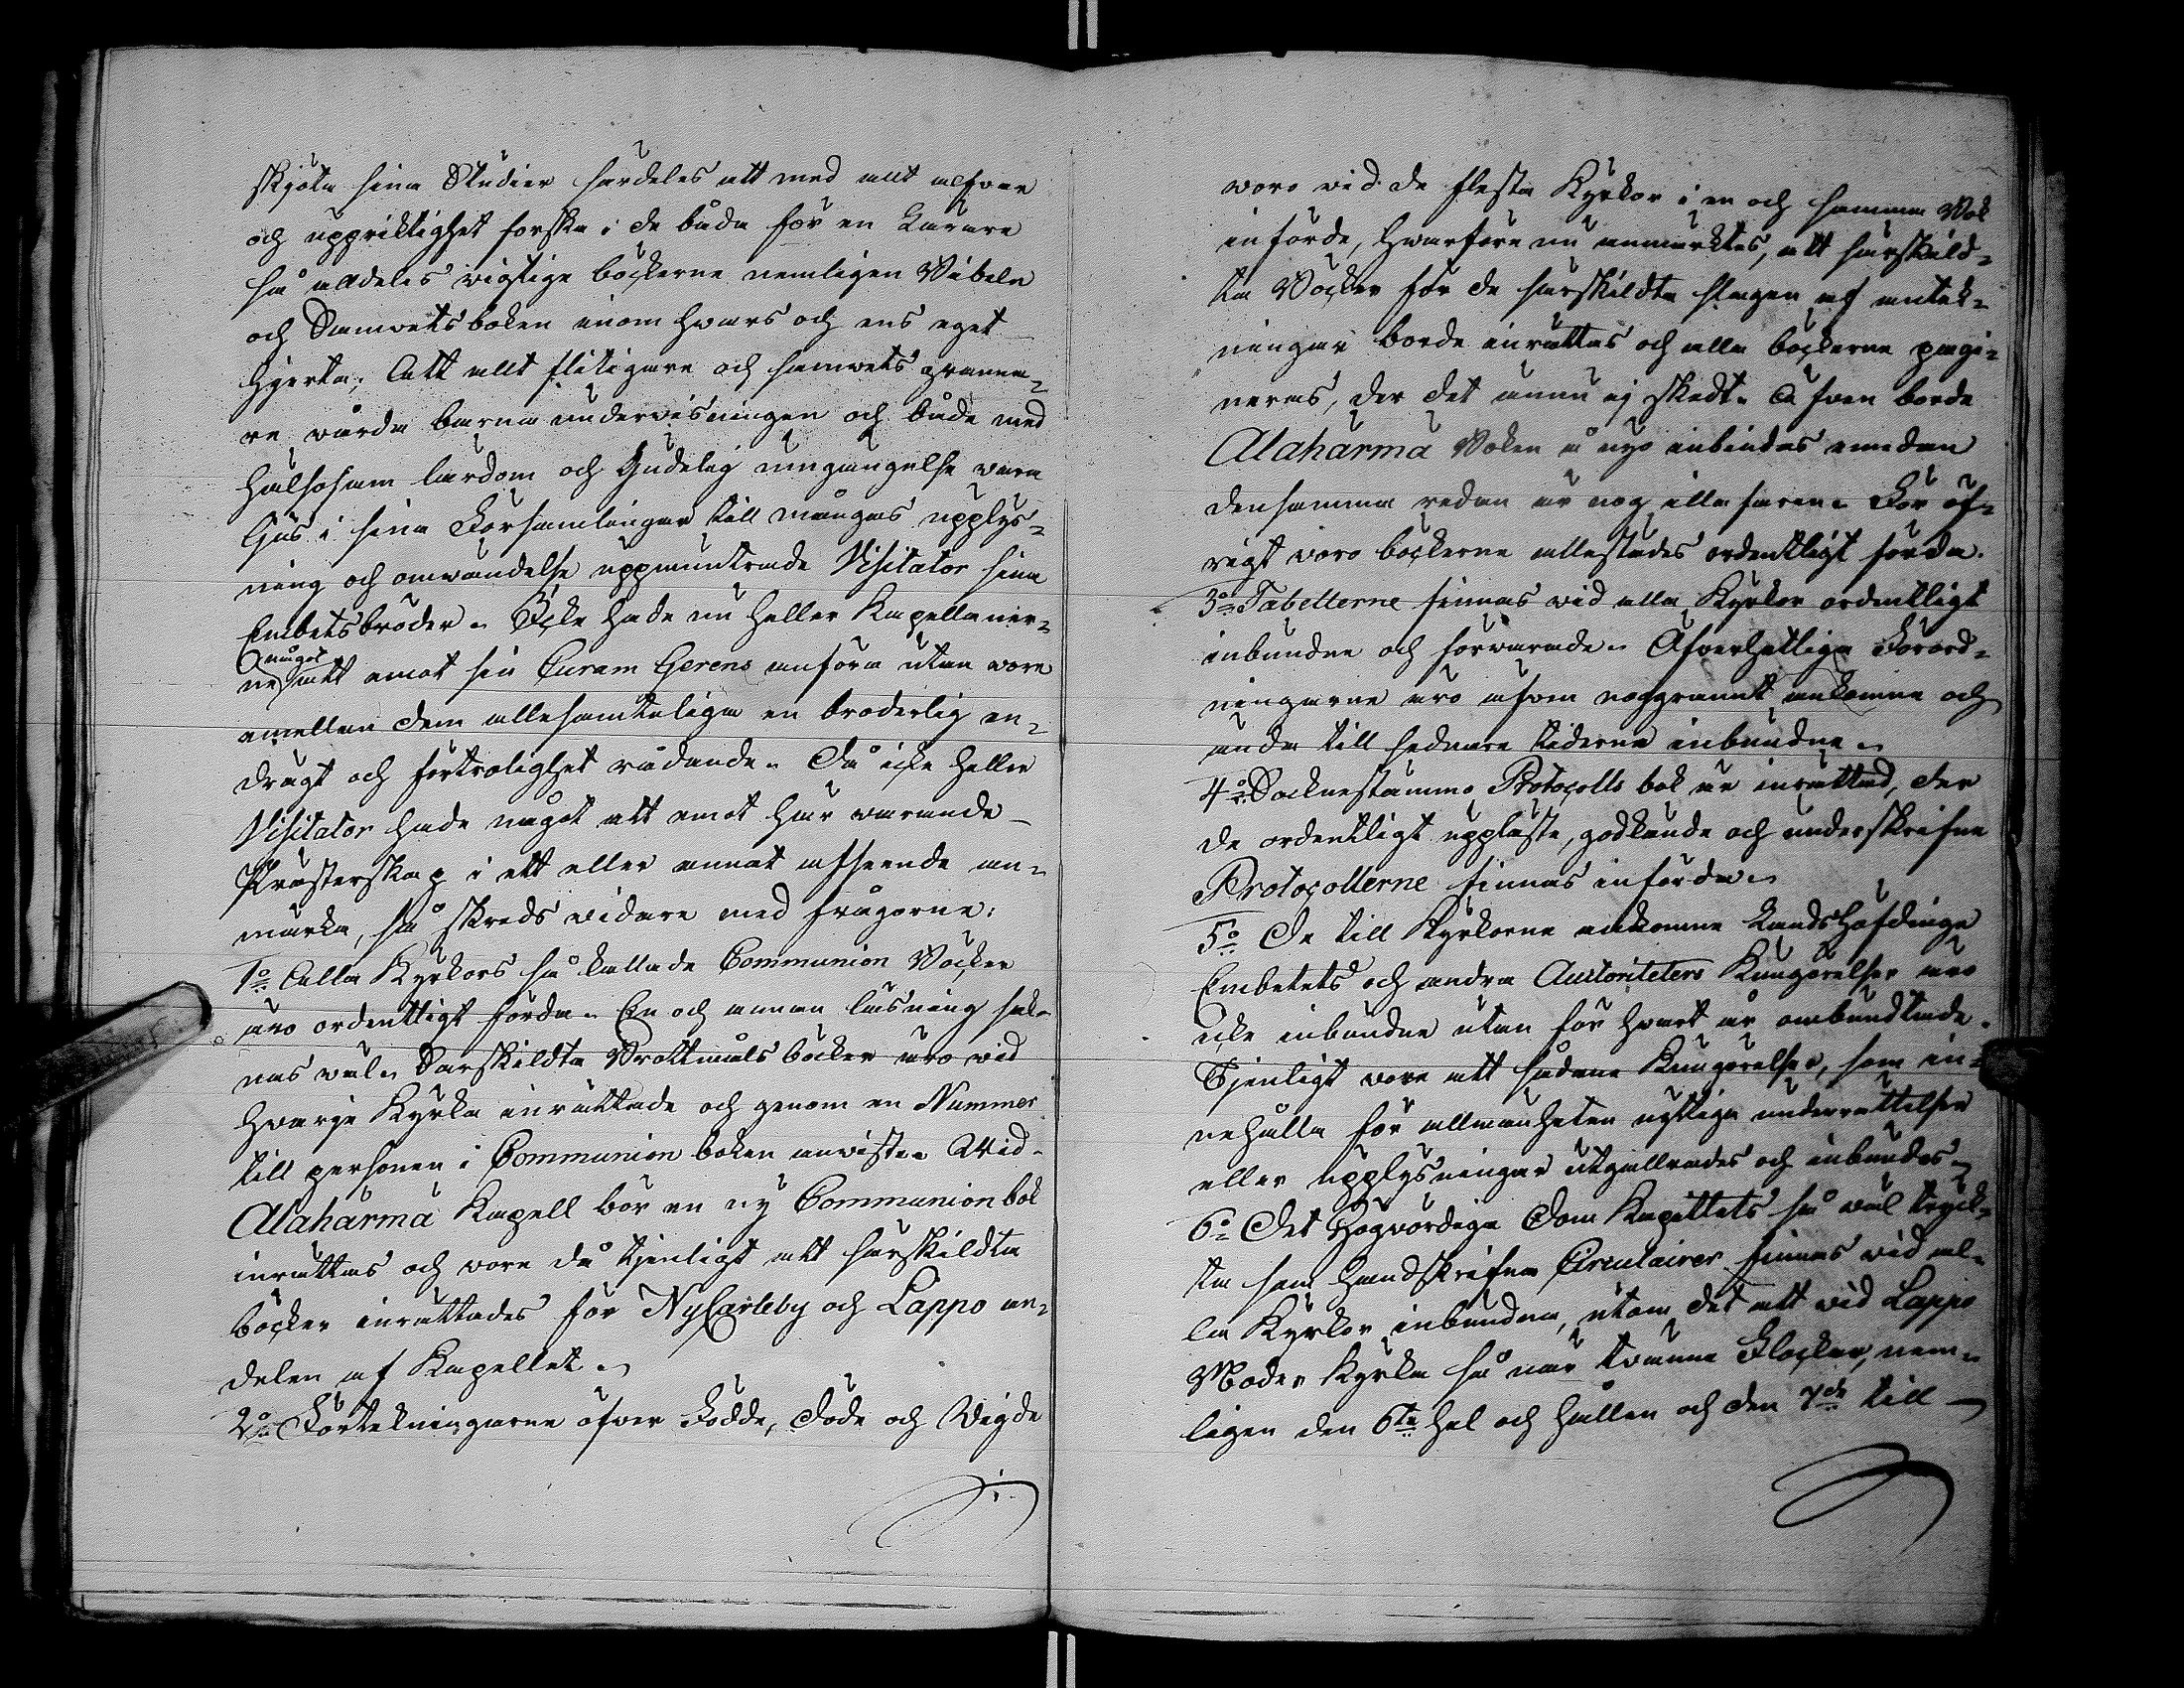 skjöta sina Studier särdeles att med allt alfvar
och uppriktighet forska i de båda för en Lärare
så alldeles wigtige böckerne nemligen Bibeln
och Samwetsboken inom hwars och ens eget
Hjerta; Att allt flitigare och samwets granna-
re wårda barna underwisningen och både med
hälsosam lärdom och Gudelig umgängelse wara
ljus i sina Församlingar till mångas upplys-
ning och omwändelse uppmuntrade Visitator sina
Embetsbröder. Icke hade nu heller Kapellaner-
något
ne att emot sin Curam Gerens anföra utan wore
emellan dem allesamteliga en broderlig en-
drägt och förtrolighet rådande. Då icke heller
Visitator hade något att emot här warande
Prästerskap i ett eller annat afseende an-
märka, så skreds widare med frågorne:
1o Alla Kyrkors så kallade Communion Böcker
äro ordentligt förda. En och annan läsning sak-
nas wäl. Särskildta Brottmåls böcker äro wid
hwarje Kyrka inrättade och genom en Nummer
till personen i Communion boken anwiste. Wid
Alahärmä Kapell bör en ny Communion bok
inrättas och wore då tjenligt att särskildta
böcker inrättades för NyCarleby och Lappo an-
delen af Kapellet.
2o Förtekningarne öfver Födde, Döde och Wigde
woro wid de flesta Kyrkor i en och samma Bok
införde, hwarföre nu anmärktes, att särskild-
ta Böcker för de särskildta slagen af antek-
ningar borde inrättas och alla böckerna pagi-
neras, der det ännu ej skedt. Äfven borde
Alahärmä Boken å nyo inbindas emedan
densamma redan är nog illa faren. För öf-
rigt woro böckerne allestädes ordentligt förda.
3o Tabellerne finnas wid alla Kyrkor ordentligt
inbundne och förwarade. Öfverhetliga Förord-
ningarne äro äfven noggrannt ankomne och
ända till sednare tiderna inbundne.
4o Sockenstämmo Protocolls bok är inrättad, der
de ordentligt uppläste, godkände och underskrifne
Protocollerne finnas införda.
5o De till Kyrkorne ankomne Landshöfdinge
Embetets och andra Autoriteters Kungörelser äro
icke inbundne utan för hwart år ombundtade.
Tjenligt vore att sådane Kungörelser, som in-
nehålla för allmänheten nyttiga underrättelser
eller upplysningar utgallrades och inbundos.
6o Det Högvördiga Dom Kapitlets så wäl tryck-
ta som handskrifna Circulairer finnas wid al-
la Kyrkor inbundna, utom det att wid Lappo
Moder Kyrka så när tvänne Flockar, nem-
ligen den 6te hel och hållen och den 7de till